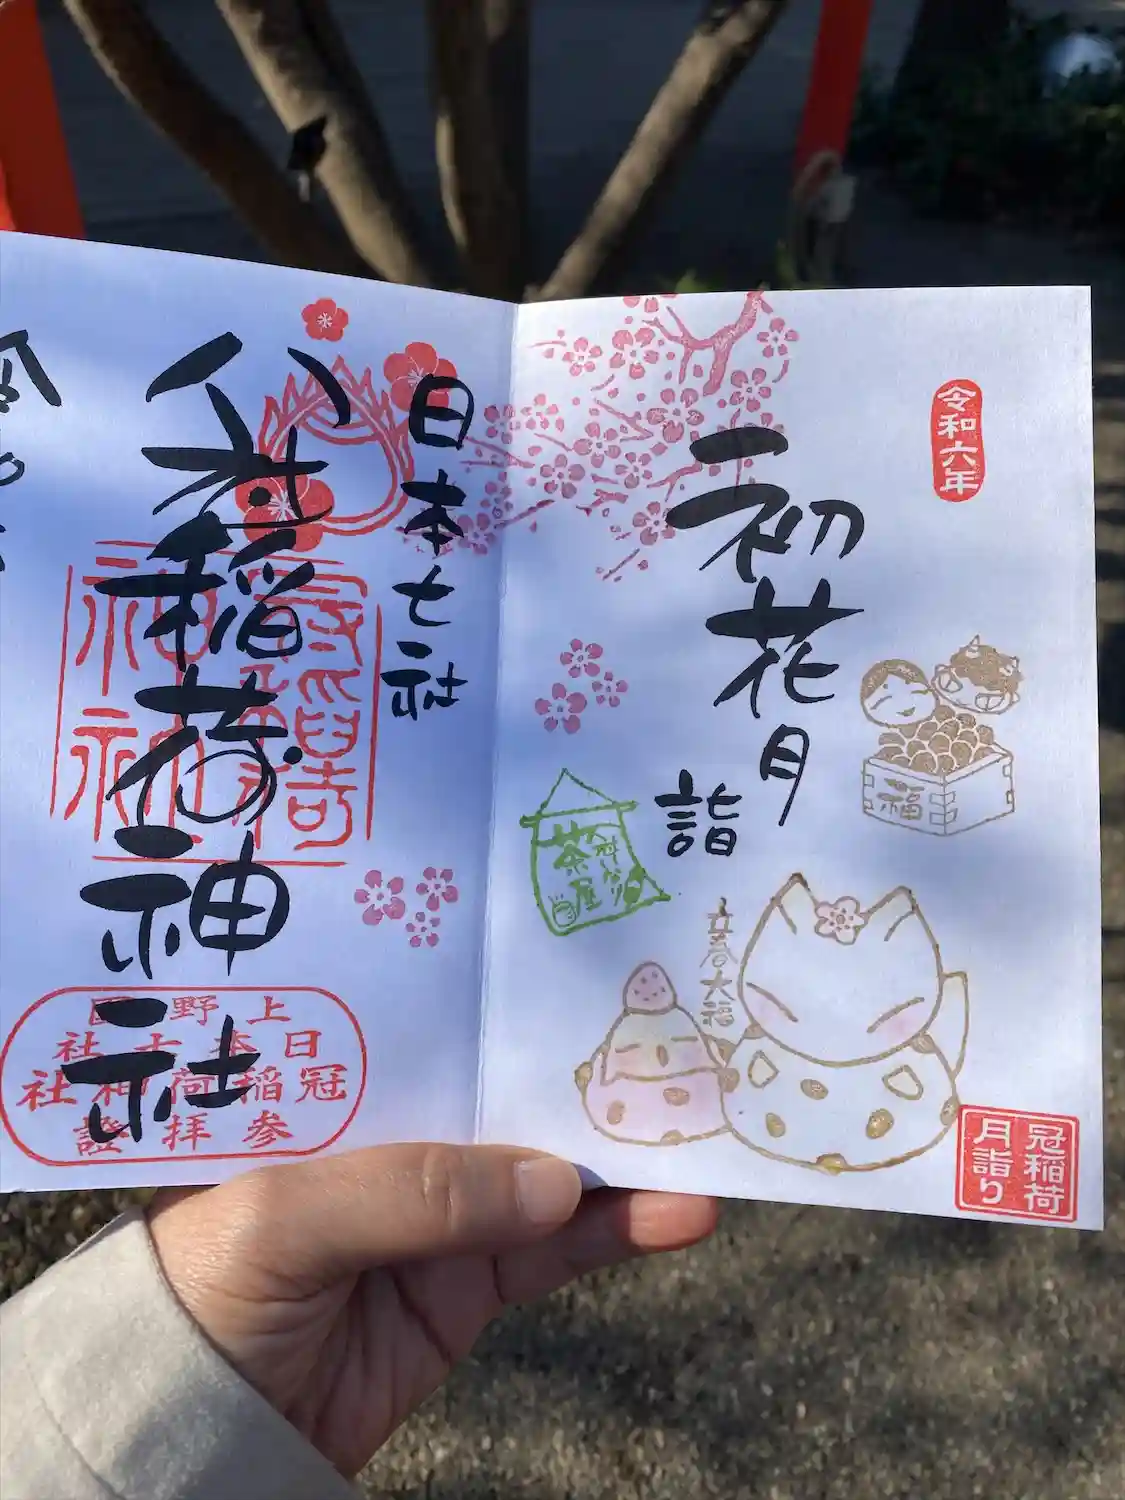 令和六年
初花月
詣
福
茶屋
立春大福
冠稲荷
月詣り
日本七社
冠稲荷神社
上野国
日本七社
冠稲荷神社
参拝證